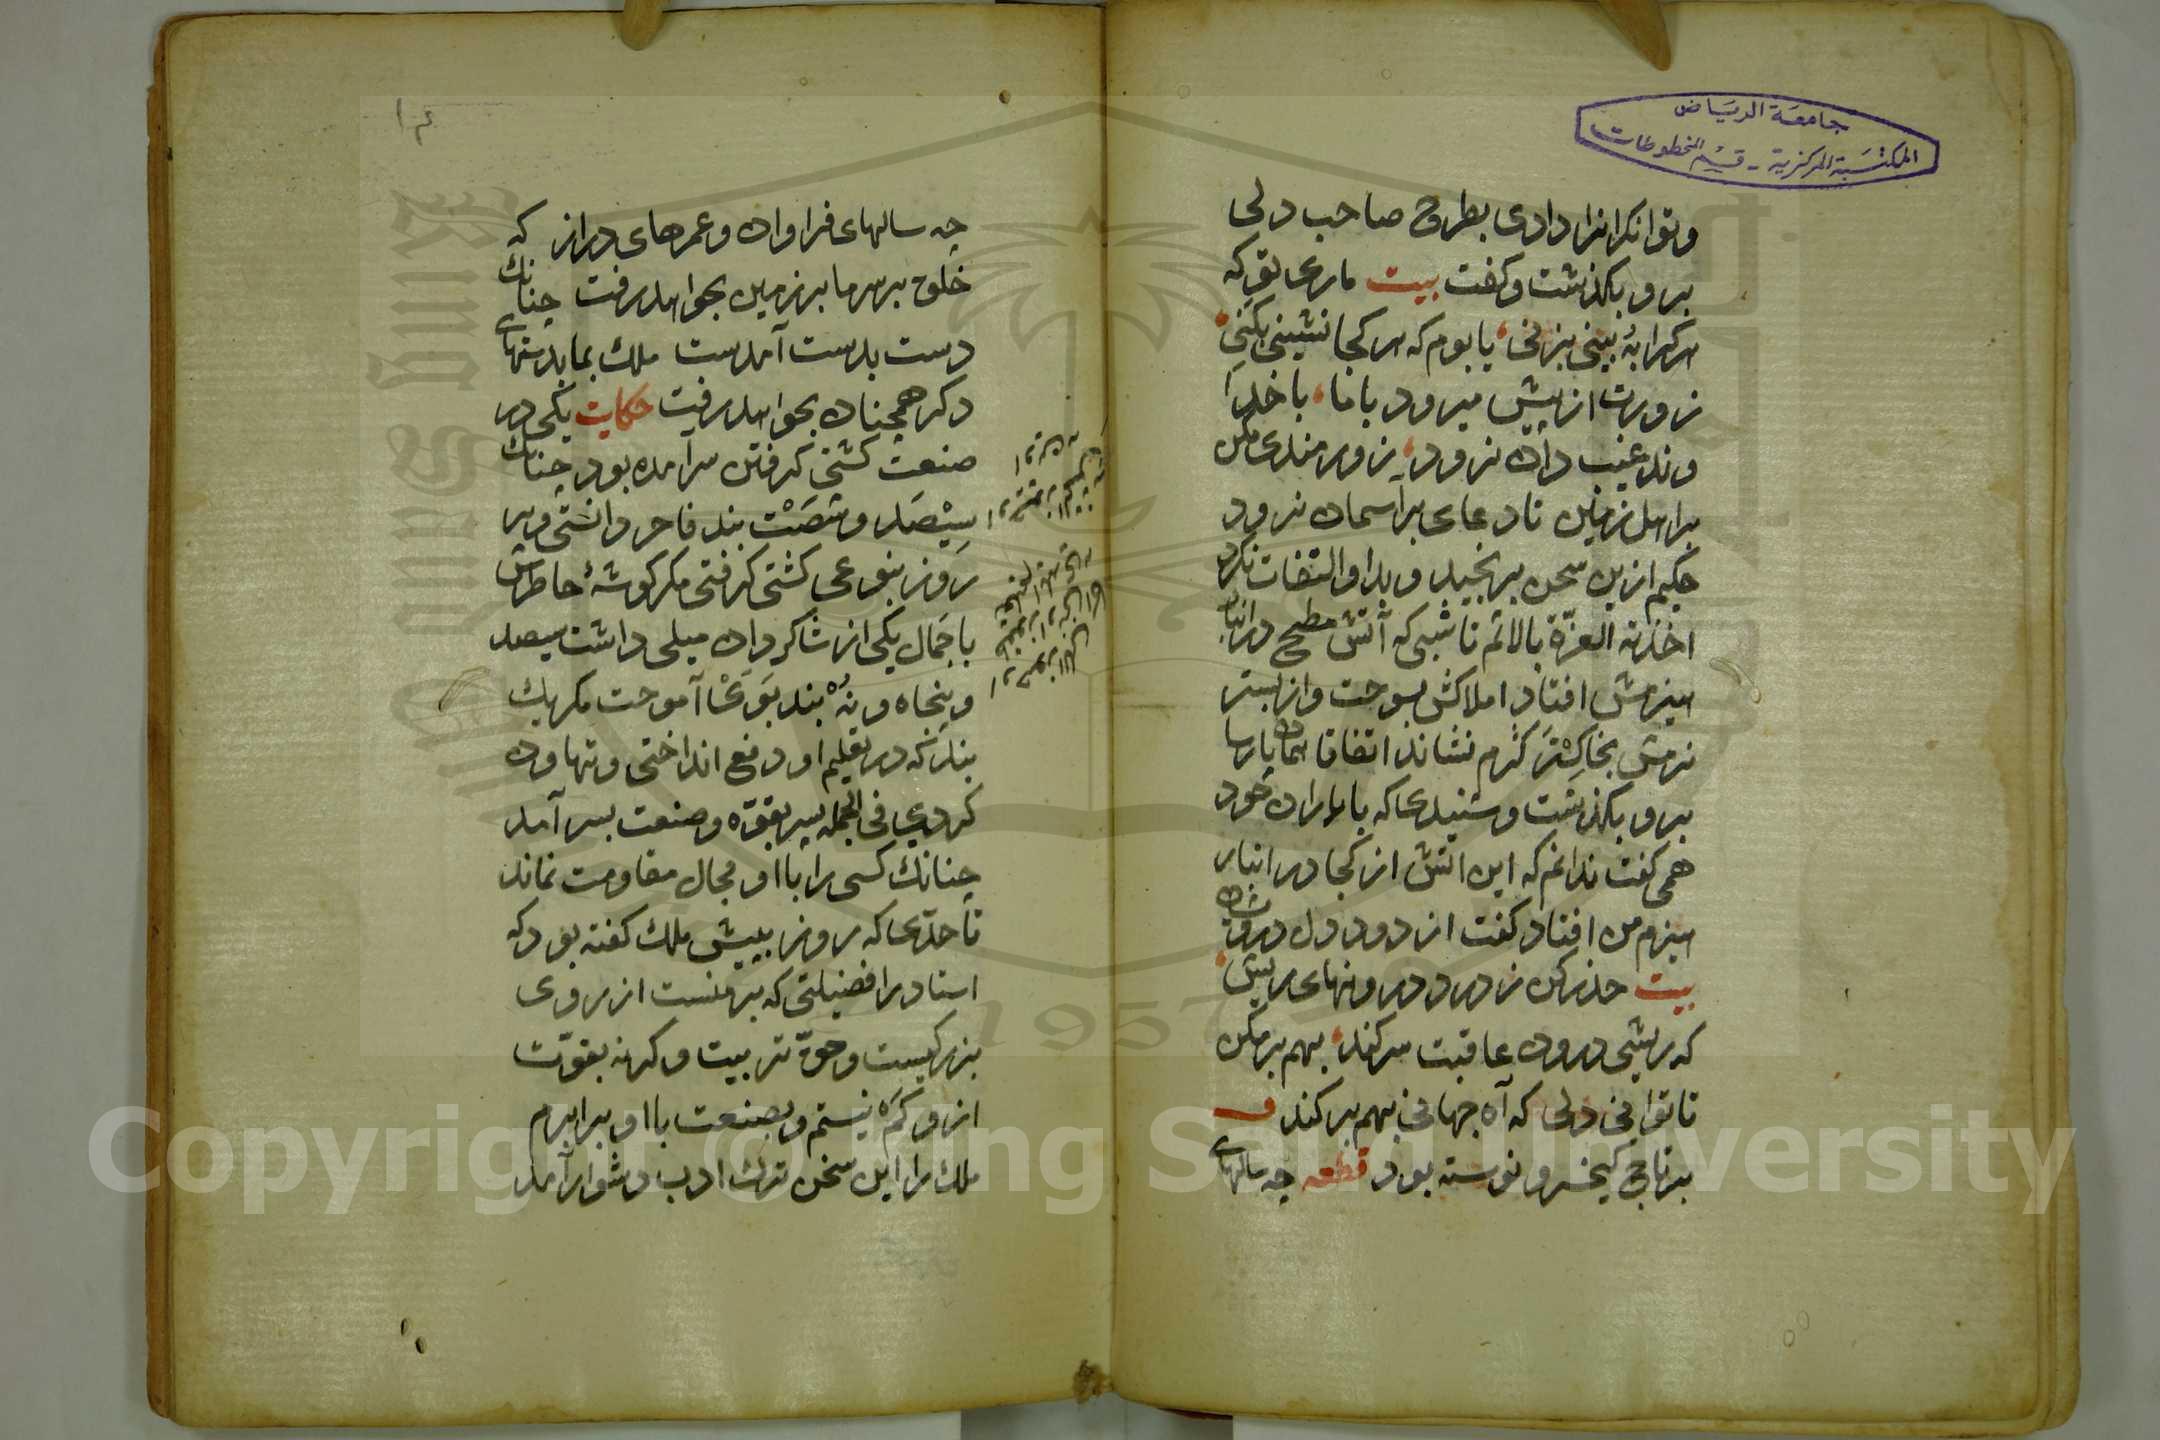 جامعة الرياض
المكتبة المركزية - قسم المخطوطات
وتوانكرانرا دادی بطرح صاحب دلی
برو بکذشت وکفت بیت ماری تو که
هر کرا به بینی بزنی یا بوم که هر کجا نشینی بکنی
زورت از پیش میرود با ما با خدا
وند غیب دان نرود زورمندی مکن
بر اهل زمین تا دعای بر آسمان نرود
حکیم ازین سخن برنجید وبدو التفات نکرد
اخذته العزة بالاثم تا شبی که آتش مطبخ در انبار
هیزمش افتاد املاکش بسوخت واز بستر
نرمش بخاکستر کرم نشاند اتفاقا همان پارسا
برو بکذشت وشنیدی که با یاران خود
همی کفت ندانم که این اتش از کجا در انبار
هیزم من افتاد کفت از دود دل درویشان
بیت حذر کن ز درد درونهای ریش
که ریش درون عاقبت سر کند بهم بر مکن
تا توانی دلی که آه جهانی بهم بر کند
بر تاج کیخسرو نوسته بود قطعه چه سالهای
چه سالهای فراوان وعمرهای دراز که
خلق بر سر ما بر زمین بخواهد رفت چنانک
دست بدست آمدست ملک بما بدستهای
دکر همچنان بخواهد رفت حکایت یکی در
صنعت کشتی کرفتن سرامده بود چنانک
سیصد وشصت بند فاخر دانستی وهر
روز بنوعی کشتی کرفتی مکر کوشهٔ خاطرش
با جمال یکی از شاکردان میلی داشت سیصد
وپنجاه ونه بند بوی آموخت مکر یک
بند که در تعلیم او دفع انداختی وتهاون
کردی فی الجمله پسر بقوة وصنعت بسر آمد
چنانک کسی را با او مجال مقاومت نماند
تا حدی که روز پیش ملک کفته بود که
استاد را فضیلتی که بر منست از روی
بزرکیست وحق تربیت وکرنه بقوت
از و کم نیستم وبصنعت با او برابرم
ملک را این سخن ترک ادب دشوار آمد
1957
Copyright © King Saud University